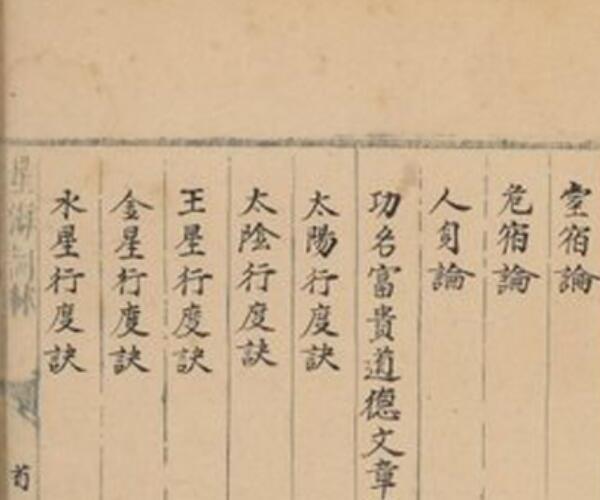 室宿論
危宿論
人身論
功名富貴道德文章
太陽行度訣
太陰行度訣
王星行度訣
金星行度訣
水星行度訣
星海詞林